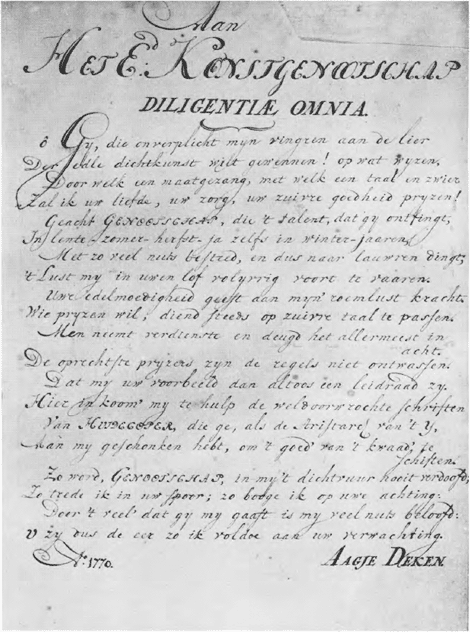 Aan
Het Ed. Konstgenootschap
DILIGENTIÆ OMNIA.
ô Gy, die onverplicht myn vingren aan de lier
Der edle dichtkunst wilt gewennen! op wat wyzen,
Door welk een maatgezang, met welk een taal en zwier
Zal ik uw liefde, uw zorg, uw zuivre goedheid pryzen!
Geacht GENOOTSCHAP, die 't talent, dat gy ontfingt,
In lente- zomer- herfst- ja zelfs in winter-jaaren,
Met zo veel nuts besteed, en dus naar lauwren dingt,
't Lust my in uwen lof volyvrig voort te vaaren.
Uwe edelmoedigheid geeft aan myn' roemlust kracht.
Wie pryzen wil, diend steeds op zuivre taal te passen.
Men neemt verdienste en deugd het allermeest in
acht.
De oprechtste pryzers zyn de regels niet ontwassen.
Dat my uw voorbeeld dan altoos een leidraad zy.
Hier in koom' my te hulp de weldoorwrochte schriften
Van HUIDECOPER, die ge, als de Aristarch van 't Y,
Aan my geschonken hebt, om 't goed van 't kwaad te
schiften.
Zo word, GENOOTSCHAP, in my 't dichtvuur nooit verdoofd;
Zo trede ik in uw spoor; zo booge ik op uwe achting:
Door 't veel dat gy my gaaft is my veel nuts beloofd:
U zy dus de eer zo ik voldoe aan uw verwachting.
Ao. 1770.
AAGJE DEKEN.